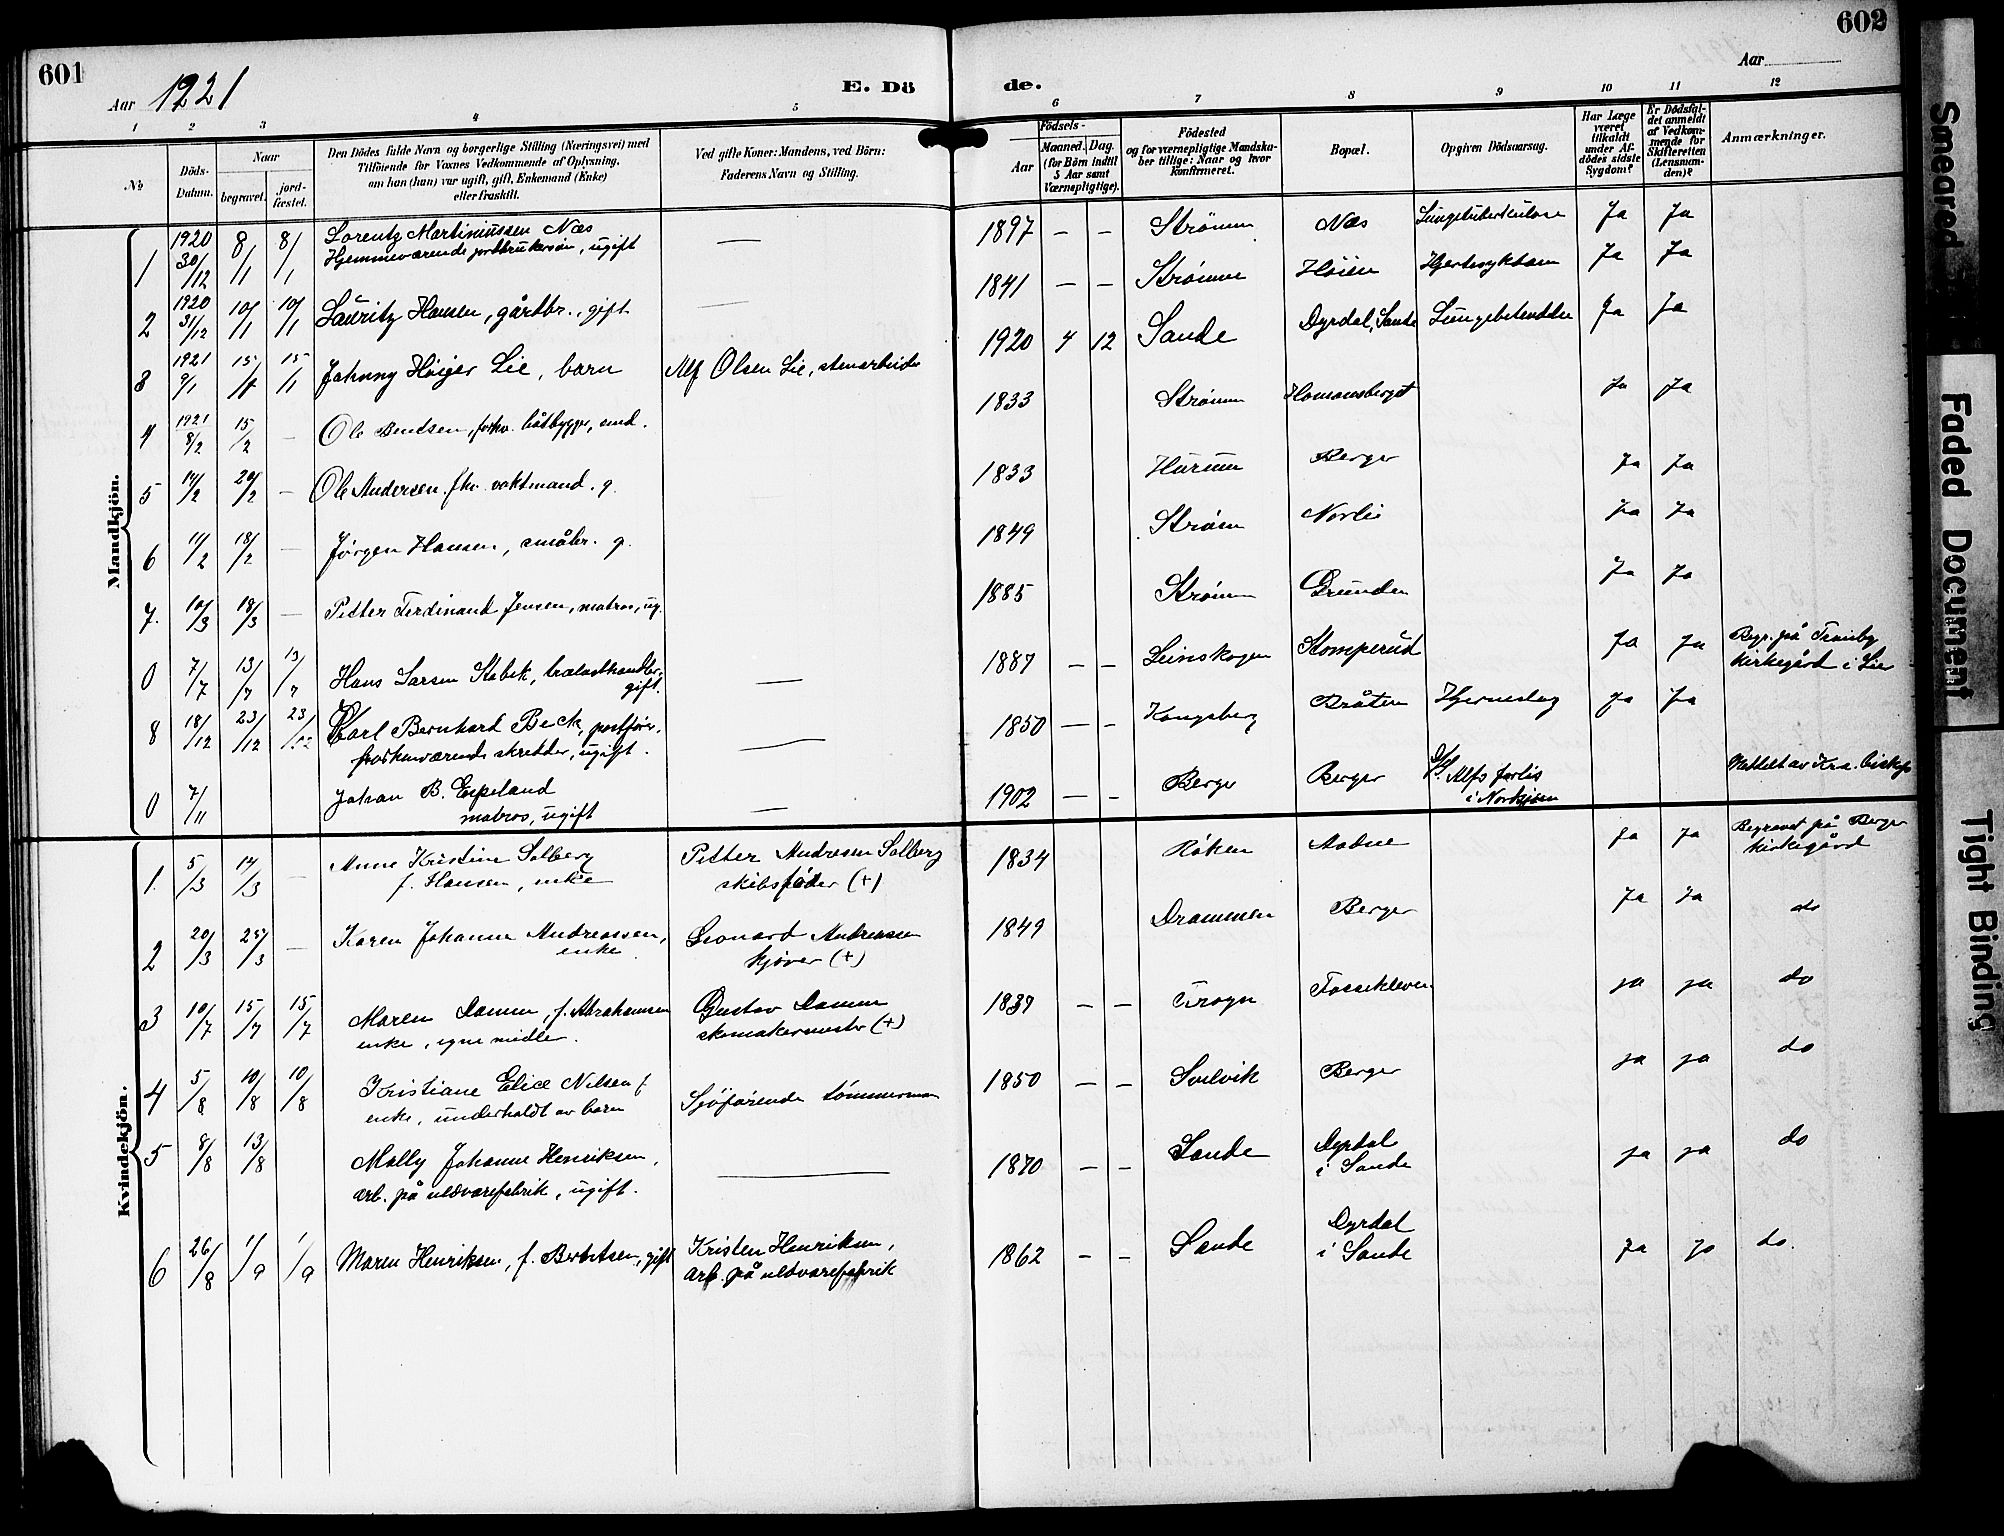 601
Aar 1921
E. Dö
de.
Aar
602
1 2 3 4 5 6 7 8 9 10 11 12
No
Döds-Datum.
Naar
begravet.
jord-fæstet.
Den Dödes fulde Navn og borgerlige Stilling (Næringsvei) med
Tilföiende for Voxnes Vedkommende af Oplysning,
om han (hun) var ugift, gift, Enkemand (Enke)
eller fraskilt.
Ved gifte Koner: Mandens, ved Börn:
Faderens Navn og Stilling.
Födsels-
Aar
Maaned. Dag.
(for Börn indtil
5 Aar samt
Værnepligtige).
Födested
og for værnepligtige Mandska-
ber tillige: Naar og hvor
konfirmeret.
Bopæl.
Opgiven Dödsaarsag.
Har Læge
været
tilkaldt
under Af-
dödes sidste
Sygdom?
Er Dödsfal-
det anmeldt
af Vedkom-
mende for
Skifteretten
(Lensman-
den)?
Anmærkninger.
Mandkjön.
1 1920 30/12 8/1 8/1 Lorentz Martiniussen Næs — 1897 — — Strømm Næs Lungetuberkulose Ja Ja
Hjemmeværende jordbrukersøn, ugift
2 1920 31/12 10/1 10/1 Lauritz Hansen, gårdbr., gift — 1841 — — Strømm Høien Hjertesykdom Ja Ja
3 1921 9/1 15/1 15/1 Johnny Höiger Lie, barn Alf Olsen Lie, stenarbeider 1920 4 12 Sande Dyrdal, Sande Lungebetendelse Ja Ja
4 1921 8/2 15/2 — Ole Bentsen, forhv. båtbygger, enkd. 1833 Strømm Homansberget Ja Ja
5 14/2 20/2 — Ole Andersen fhv. vaktmand. g. 1833 Hurum Berger Ja Ja
6 11/2 18/2 — Jørgen Hansen, småbr. g. 1849 Strøm Norlie Ja Ja
7. 10/3 18/3 — Petter Ferdinand Jensen, matros, ug. 1885 Strømm Grunden Ja Ja
0 7/7 13/7 13/7 Hans Larsen Stabek, trælasthandler, gift. — 1887 — — Leinskogen Stomperud Ja Ja Begr. på Tranby kirkegård i Lier
8 18/12 23/12 23/12 Carl Bernhard Beck, postfører, — 1850 — — Kongsberg Bråten Hjerneslag Ja Ja
forhenværende skredder, ugift.
0 7/11 Johan B. Espeland — 1902 — — Berger Berger S/S. Alfs forlis i Nordsjøen Meddelt av Kra. biskop
matros, ugift
Kvindekjön.
1. 5/3 14/3 — Anne Kristine Solberg Petter Andresen Solberg 1834 Røken Aadne Ja Ja Begravet på Berger kirkegård
f. Hansen, enke skibsfører (+)
2 20/3 25/3 — Karen Johanne Andreassen, Leonard Andreassen 1849 Drammen Berger Ja Ja do
enke kjører (+)
3 10/7 15/7 15/7 Maren Damm, f. Abrahamsen Gustav Damm 1839 — — Frogn Fossekleven Ja Ja do
enke, egne midler. skomakermester (+)
4 5/8 10/8 10/8 Kristiane Elice Nilsen f. Sjøfarende tømmerman 1850 — — Svelvik Berger Ja Ja do
enke, underholdt av barn
5 8/8 13/8 Molly Johanne Henriksen, — 1870 — — Sande Dyrdal i Sande Ja Ja do
arb. på uldvarefabrik, ugift.
6 26/8 1/9 1/9 Maren Henriksen, f. Berntsen, gift Kristen Henriksen, 1862 — — Sande Dyrdal i Sande Ja Ja do.
arb. på uldvarefabrik
Smeared
Faded Document
Tight Binding